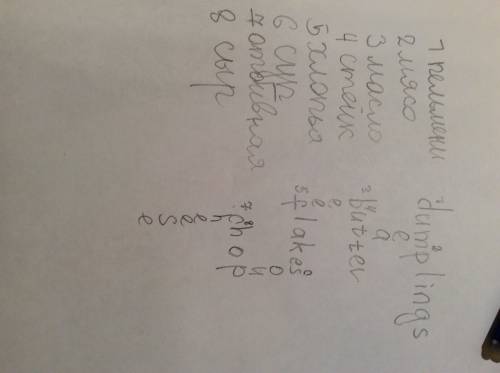 1 пельмени
2 мясо
3 масло
4 стейк
5 хлопья
6 суп
7 отбивная
8 сыр
dumplings
e
a
butter
e
5 flakes
o
u
7 chop
h
e
e
s
e